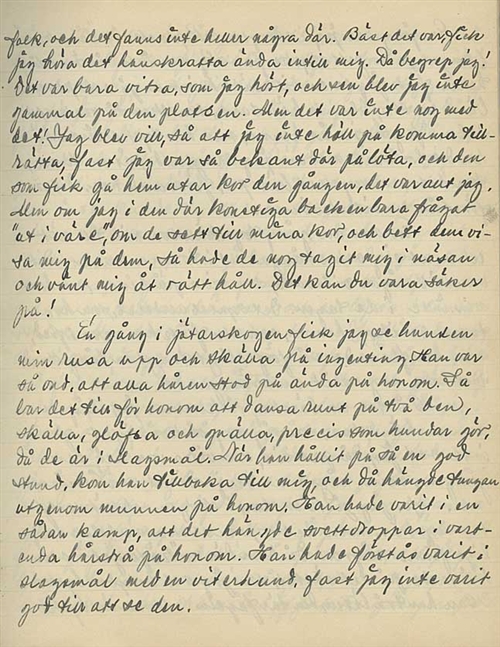 folk, och det fanns inte heller några där. Bäst det var, fick
jag höra det hånskratta ända intill mig. Då begrep jag!
Det var bara vitra, som jag hört, och sen blev jag inte
gammal på den platsen. Men det var inte nog med
det! Jag blev vill, så att jag inte höll på komma till-
rätta, fast jag var så bekant där på löta, och den
som fick gå hem utan kor den gången, det var aut jag.
Men om jag i den där konstiga backen bara frågat
"ut i väre", om de sett till mina kor, och bett dem vi-
sa mig på dem, så hade de nog tagit mig i näsan
och vänt mig åt rätt håll. Det kan du vara säker
på!
En gång i jätarskogen fick jag se hunden
min rusa upp och skälla på ingenting. Han var
så ond, att alla håren stod på ända på honom. Så
bar det till för honom att dansa runt på två ben,
skälla, gläfsa och gnälla, precis som hundar gör,
då de är i slagsmål. När han hållit på så en god
stund, kom han tillbaka till mig, och då hängde tungan
utgenom munnen på honom. Han hade varit i en
sådan kamp, att det hängde svettdroppar i vart-
enda hårstrå på honom. Han hade förstås varit i
slagsmål med en viterhund, fast jag inte varit
god till att se den.